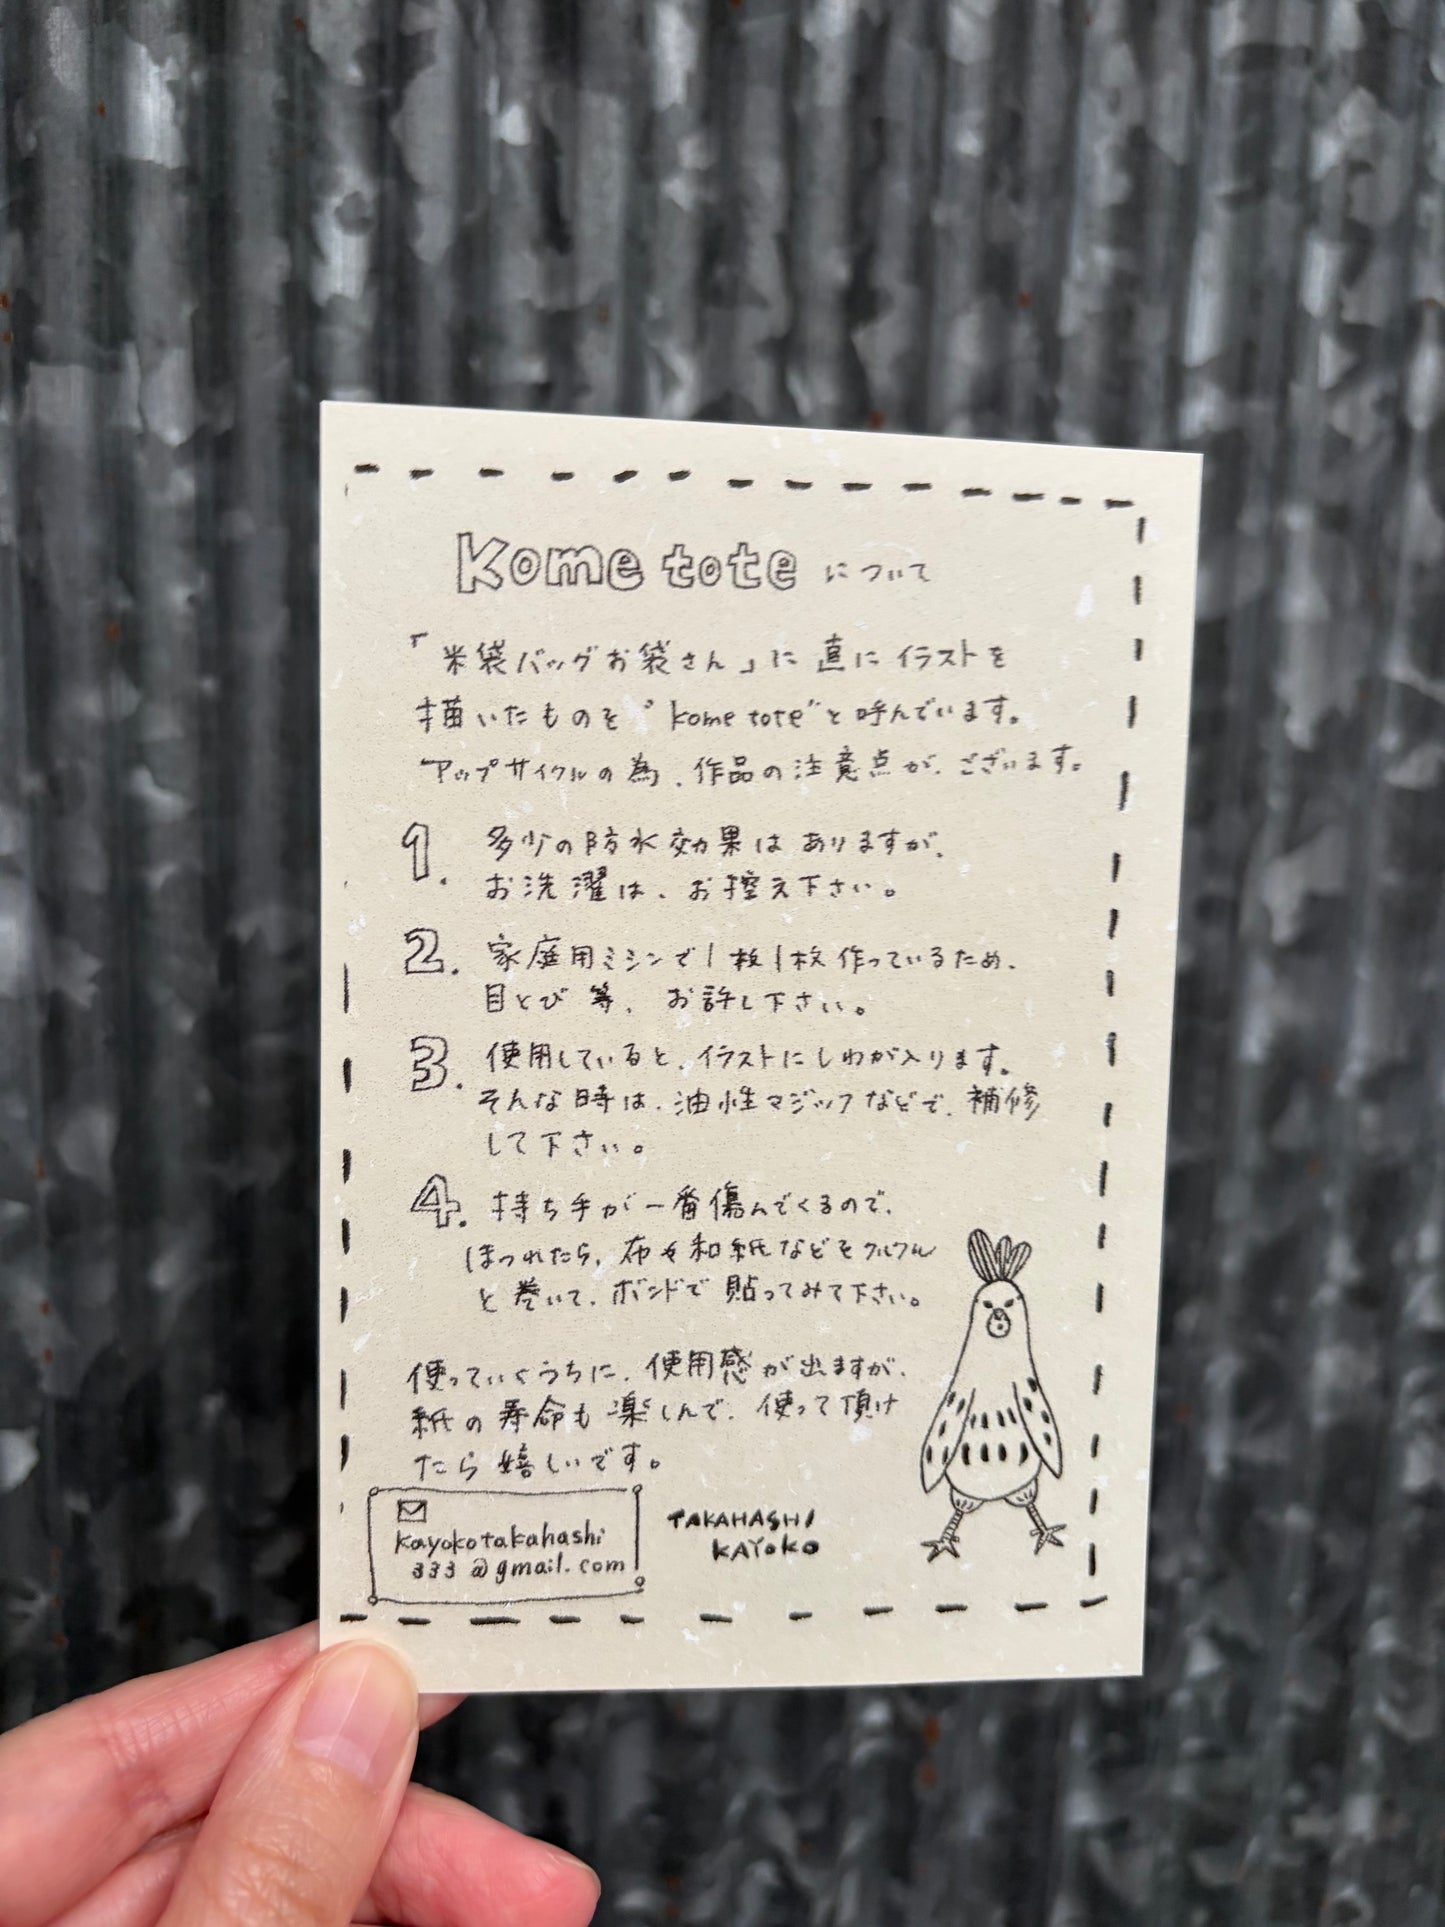 kome tote について
「米袋バッグお袋さん」に直にイラストを
描いたものを"kome tote"と呼んでいます。
アップサイクルの為、作品の注意点が、ございます。
1. 多少の防水効果はありますが、
お洗濯は、お控え下さい。
2. 家庭用ミシンで1枚1枚作っているため、
目とび等、お許し下さい。
3. 使用していると、イラストにしわが入ります。
そんな時は、油性マジックなどで、補修
して下さい。
4. 持ち手が一番傷んでくるので、
ほつれたら、布や和紙などをクルクル
と巻いて、ボンドで貼ってみて下さい。
使っていくうちに、使用感が出ますが、
紙の寿命も楽しんで、使って頂け
たら嬉しいです。
kayokotakahashi
333@gmail.com
TAKAHASHI
KAYOKO